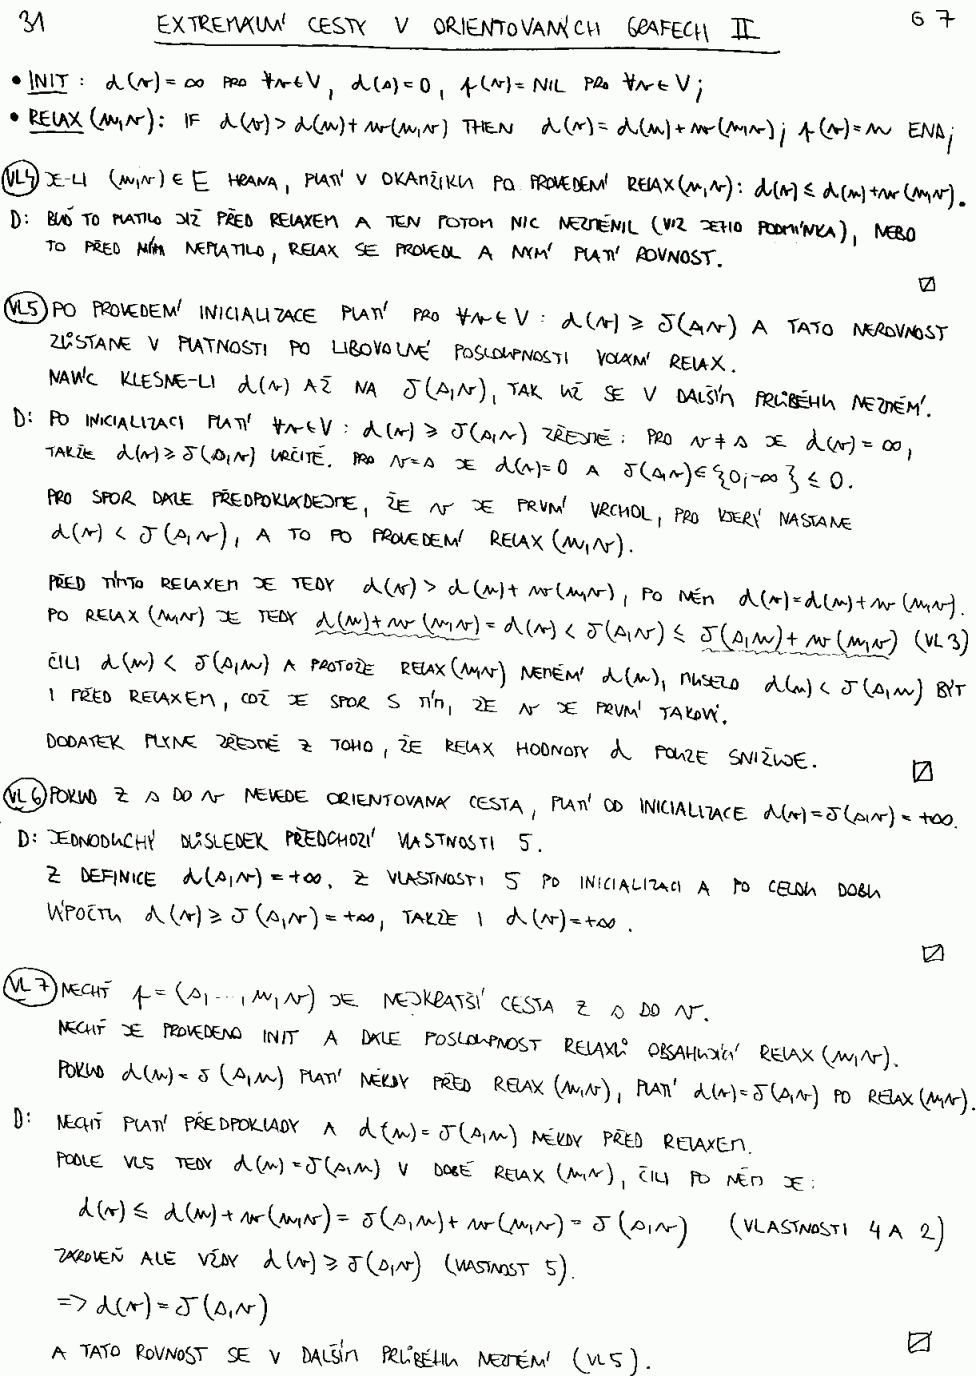 31 EXTREMÁLNÍ CESTY V ORIENTOVANÝCH GRAFECH II G 7
• INIT : d(v) = ∞ PRO ∀v∈V, d(s)=0, p(v)= NIL PRO ∀v∈V;
• RELAX (u,v): IF d(v) > d(u)+ w(u,v) THEN d(v) = d(u)+ w(u,v); p(v)=u END;
VL4 JE-LI (u,v) ∈ E HRANA, PLATÍ V OKAMŽIKU PO PROVEDENÍ RELAX(u,v): d(v) ≤ d(u)+w(u,v).
D: BUĎ TO PLATILO JIŽ PŘED RELAXEM A TEN POTOM NIC NEZMĚNIL (VIZ JEHO PODMÍNKA), NEBO
TO PŘED NÍM NEPLATILO, RELAX SE PROVEDL A NYNÍ PLATÍ ROVNOST.
VL5 PO PROVEDENÍ INICIALIZACE PLATÍ PRO ∀v∈V : d(v) ≥ δ(s,v) A TATO NEROVNOST
ZŮSTANE V PLATNOSTI PO LIBOVOLNÉ POSLOUPNOSTI VOLÁNÍ RELAX.
NAVÍC KLESNE-LI d(v) AŽ NA δ(s,v), TAK UŽ SE V DALŠÍM PRŮBĚHU NEZMĚNÍ.
D: PO INICIALIZACI PLATÍ ∀v∈V : d(v) ≥ δ(s,v) ZŘEJMĚ : PRO v ≠ s JE d(v) = ∞,
TAKŽE d(v) ≥ δ(s,v) URČITĚ. PRO v=s JE d(v)=0 A δ(s,v)∈{0;-∞} ≤ 0.
PRO SPOR DÁLE PŘEDPOKLÁDEJME, ŽE v JE PRVNÍ VRCHOL, PRO KTERÝ NASTANE
d(v) < δ(s,v), A TO PO PROVEDENÍ RELAX (u,v).
PŘED TÍMTO RELAXEM JE TEDY d(v) > d(u)+ w(u,v), PO NĚM d(v)=d(u)+w(u,v).
PO RELAX (u,v) JE TEDY d(u)+ w(u,v) = d(v) < δ(s,v) ≤ δ(s,u)+ w(u,v) (VL 3)
ČILI d(u) < δ(s,u) A PROTOŽE RELAX(u,v) NEMĚNÍ d(u), MUSELO d(u) < δ(s,u) BÝT
I PŘED RELAXEM, COŽ JE SPOR S TÍM, ŽE v JE PRVNÍ TAKOVÝ.
DODATEK PLYNE ZŘEJMĚ Z TOHO, ŽE RELAX HODNOTY d POUZE SNIŽUJE.
VL6 POKUD Z s DO v NEVEDE ORIENTOVANÁ CESTA, PLATÍ OD INICIALIZACE d(v)=δ(s,v) = +∞.
D: JEDNODUCHÝ DŮSLEDEK PŘEDCHOZÍ VLASTNOSTI 5.
Z DEFINICE d(s,v) = +∞. Z VLASTNOSTI 5 PO INICIALIZACI A PO CELOU DOBU
VÝPOČTU d(v) ≥ δ(s,v) = +∞, TAKŽE I d(v) = +∞.
VL7 NECHŤ p = (s,...,u,v) JE NEJKRATŠÍ CESTA Z s DO v.
NECHŤ JE PROVEDENO INIT A DÁLE POSLOUPNOST RELAXŮ OBSAHUJÍCÍ RELAX (u,v).
POKUD d(u) = δ(s,u) PLATÍ NĚKDY PŘED RELAX (u,v), PLATÍ d(v)=δ(s,v) PO RELAX(u,v).
D: NECHŤ PLATÍ PŘEDPOKLADY A d(u) = δ(s,u) NĚKDY PŘED RELAXEM.
PODLE VL5 TEDY d(u) = δ(s,u) V DOBĚ RELAX (u,v), ČILI PO NĚM JE:
d(v) ≤ d(u)+ w(u,v) = δ(s,u) + w(u,v) = δ(s,v) (VLASTNOSTI 4 A 2)
ZÁROVEŇ ALE VŽDY d(v) ≥ δ(s,v) (VLASTNOST 5).
=> d(v) = δ(s,v)
A TATO ROVNOST SE V DALŠÍM PRŮBĚHU NEZMĚNÍ (VL5).